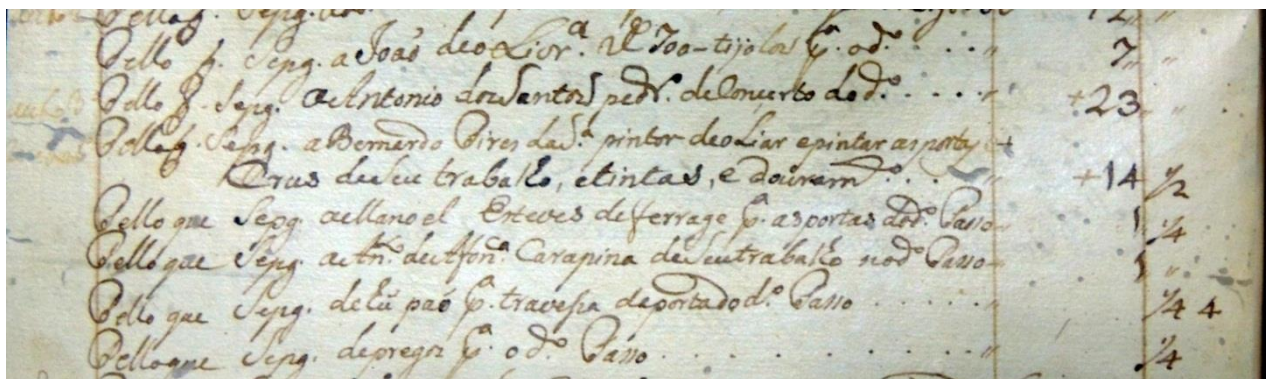 Pello q. Sepg. a João de oLivr.ª de 700 - tijolos p.ª o d.º . . . . " 7 "
Pello q. Sepg. a Antonio dos Santos pedr.º de Concerto do d.º . . . . " +23 "
Pello q. Sepg. a Bernardo Pires da S.ª pintor de oLiar e pintar as portas e +
Crus de Seu trabalho, e tintas, e douram.to . . . " +14 1/2
Pello que Sepg. a Manoel Esteves de ferrage p.ª as portas do d.º Passo " 1 1/4
Pello que Sepg. a An.to de Afon.ª Carapina de Seu trabalho no d.º Passo " 1 "
Pello que Sepg. de hũ pao p.ª travessa de porta do d.º Passo . . . . . . " 1/4 4
Pello que Sepg. de pregos p.ª o d.º Passo . . . . . . . . . . " 1/4